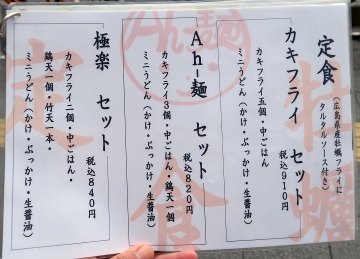 定食
（広島県産牡蠣フライに
タルタルソース付き）
カキフライ セット
税込910円
カキフライ五個・中ごはん
ミニうどん（かけ・ぶっかけ・生醤油）
Ah-麺 セット
税込820円
カキフライ3個・中ごはん・鶏天一個
ミニうどん（かけ・ぶっかけ・生醤油）
極楽 セット
税込840円
カキフライ二個・中ごはん・
鶏天一個・竹天一本・
ミニうどん（かけ・ぶっかけ・生醤油）